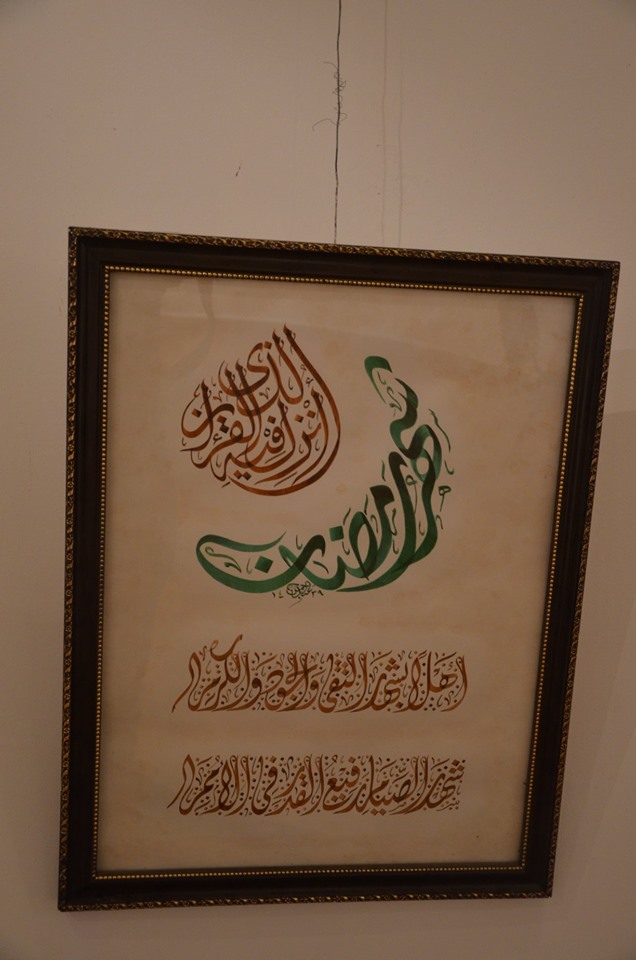 شهر رمضان
الذي أنزل فيه القرآن
١٤٣٩
أهلاً بشهر التقى والجود والكرم
شهر الصيام رفيع القدر في الأمم